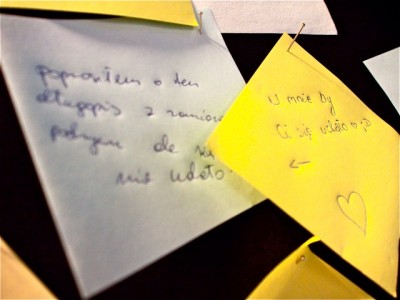 poprosiłem o ten
długopis z zamiarem
podrywu ale się
nie udało.
U mnie by
Ci się udało ;D
←
♡